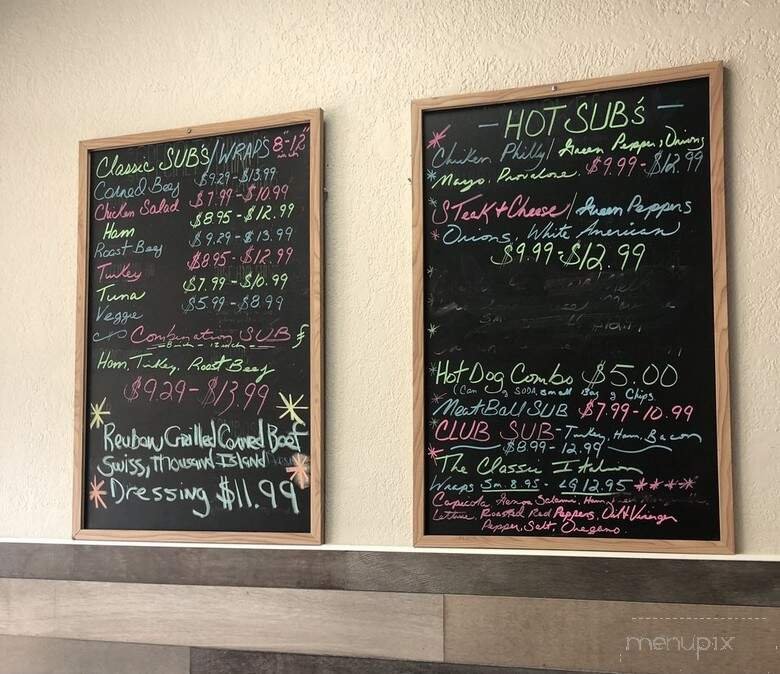 Classic SUB's/WRAPS 8"-12"
inch
Corned Beef $9.29-$13.99
Chicken Salad $7.99-$10.99
Ham $8.95-$12.99
Roast Beef $9.29-$13.99
Turkey $8.95-$12.99
Tuna $7.99-$10.99
Veggie $5.99-$8.99
Combination SUB
Ham, Turkey, Roast Beef
$9.29-$13.99
Reuben Grilled Corned Beef
Swiss, Thousand Island
Dressing $11.99
- HOT SUB's -
Chicken Philly/Green Pepper, Onions
Mayo, Provolone. $9.99-$12.99
STeak + Cheese/Green Peppers
Onions, White American
$9.99-$12.99
Hot Dog Combo $5.00
(Can of SODA, small Bag of Chips
MeatBall SUB $7.99-10.99
CLUB SUB-Turkey, Ham, Bacon
$8.99-12.99
The Classic Italian
Wraps Sm. 8.95 - LG 12.95 ****
Capicola, Genoa Salami, Ham,
Lettuce, Roasted Red Peppers, Oil + Vinegar
Pepper, Salt, Oregano.
menupix